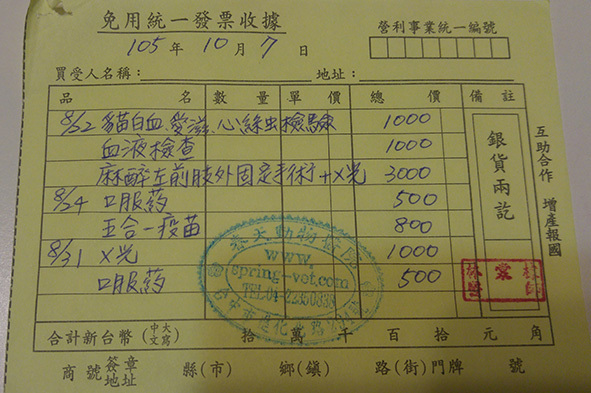 免用統一發票收據
105年10月7日
營利事業統一編號
買受人名稱：
地址：
品名 數量 單價 總價 備註
8/22 貓白血.愛滋.心絲虫檢驗 1000
血液檢查 1000
麻醉左前肢外固定手術+X光 3000
8/24 口服药 500
五合一疫苗 800
8/31 X光 1000
口服药 500
銀貨兩訖
互助合作 增產報國
春天動物醫院
www.
spring-vet.com
合計新台幣(中文大寫) 拾 萬 千 百 拾 元 角
商號簽章地址 縣(市) 鄉(鎮) 路(街)門牌 號